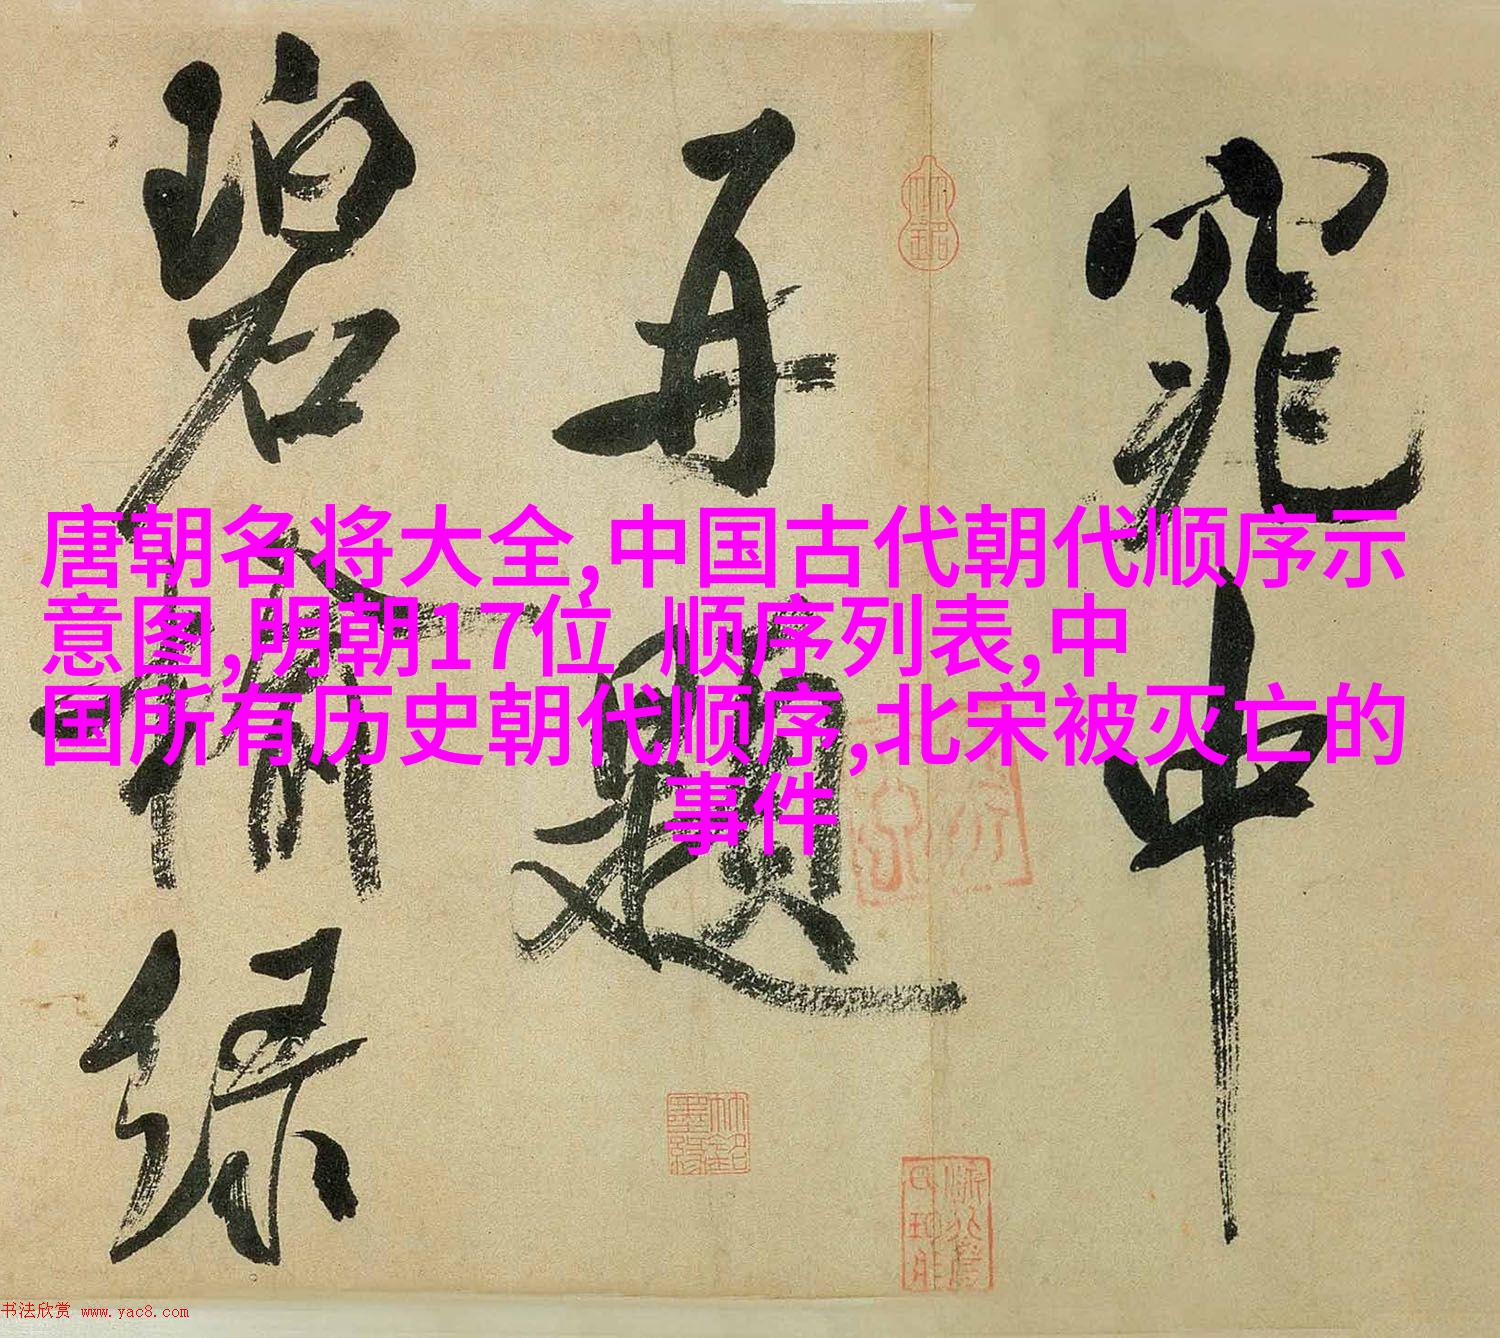 窕中
再题
碧榆绿
唐朝名将大全,中国古代朝代顺序示
意图,明朝17位 顺序列表,中
国所有历史朝代顺序,北宋被灭亡的
事件
书法欣赏 www.yac8.com